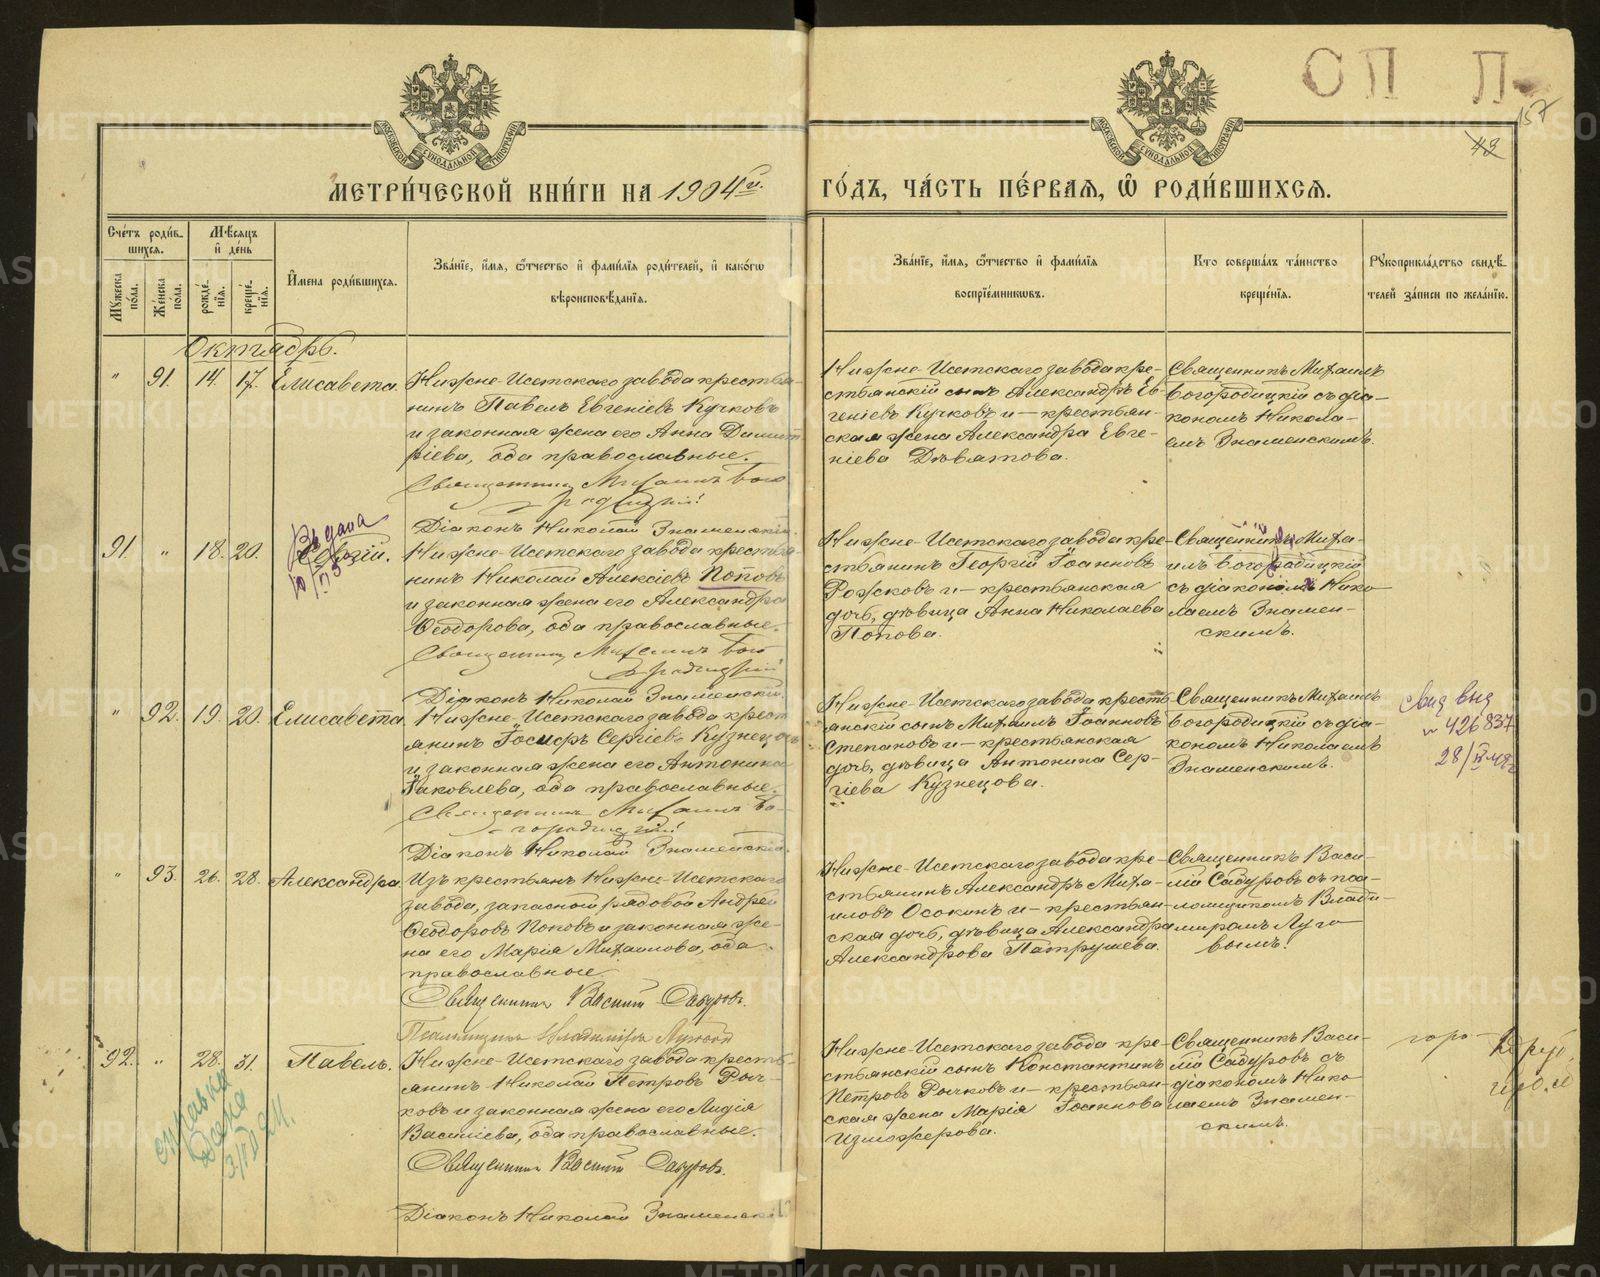 СП П
157
42
МОСКОВСКОЙ СУНОДАЛЬНОЙ ТИПОГРАФІИ
МОСКОВСКОЙ СУНОДАЛЬНОЙ ТИПОГРАФІИ
МЕТРИ́ЧЕСКОЙ КНИ́ГИ НА 1904й.
ГО́ДЪ, ЧА́СТЬ ПЕ́РВАЯ, Ѿ РОДИ́ВШИХСЯ.
Сче́тъ роди́в-
шихся.
Мѣ́сяцъ
и де́нь
Му́жеска по́ла.
Же́нска по́ла.
рожде́-
нїя.
креще́-
нїя.
И҆мена роди́вшихся.
Зва́нїе, и҆́мя, ѻ҆́тчество и҆ фами́лїя роди́телей, и҆ како́гѡ
вѣроисповѣ́данїя.
Зва́нїе, и҆́мя, ѻ҆́тчество и҆ фами́лїя
воспрїе́мниковъ.
Кто соверша́лъ та́инство
креще́нїя.
Рꙋкоприкла́дство свидѣ́-
телей за́писи по жела́нїю.
Октябрь.
" 91. 14. 17. Елисавета.
Нижне-Исетскаго завода крестья-
нинъ Павелъ Евгеніевъ Кучковъ
и законная жена его Анна Димит
ріева, оба православные.
Священникъ Михаилъ Бого
родицкій
Діаконъ Николай Знаменскій
Нижне-Исетскаго завода кре-
стьянскій сынъ Александръ Ев-
геніевъ Кучковъ и – крестьян-
ская жена Александра Евге-
ніева Девятова.
Священникъ Михаилъ
Богородицкій съ діа-
кономъ Никола-
емъ Знаменскимъ.
Выдана
91. " 18. 20. Сергій.
Нижне-Исетскаго завода крестья-
нинъ Николай Алексіевъ Поповъ
и законная жена его Александра
Ѳеодорова, оба православные.
Священникъ Михаилъ Бого
родицкій
Діаконъ Николай Знаменскій.
Нижне-Исетскаго завода кре-
стьянинъ Георгій Іоанновъ
Рожковъ и – крестьянская
дочь, дѣвица Анна Николаева
Попова.
Священникъ Миха-
илъ Богородицкій
съ діакономъ Нико
лаемъ Знамен-
скимъ.
" 92. 19. 20. Елисавета.
Нижне-Исетскаго завода крест
янинъ Іосифъ Сергіевъ Кузнецовъ
и законная жена его Антонина
Іаковлева, оба православные.
Священникъ Михаилъ Бо-
городицкій
Діаконъ Николай Знаменскій.
Нижне-Исетскаго завода кресть
янскій сынъ Михаилъ Іоанновъ
Степановъ и – крестьянская
дочь, дѣвица Антонина Сер-
гіева Кузнецова.
Священникъ Михаилъ
Богородицкій съ діа-
кономъ Николаемъ
Знаменскимъ.
Свид выд
№ 426837
" 93. 26. 28. Александра.
Изъ крестьянъ Нижне-Исетскаго
завода, запасной рядовой Андрей
Ѳеодоровъ Поповъ и законная же-
на его Марія Михаилова, оба
православные.
Священникъ Василій Сабуровъ.
Псаломщикъ Владиміръ Луговой
Нижне-Исетскаго завода кре-
стьянинъ Александръ Миха-
иловъ Осокинъ и – крестьян-
ская дочь, дѣвица Александра
Александрова Патрушева.
Священникъ Васи-
лій Сабуровъ съ пса-
ломщикомъ Влади-
миромъ Луго
вымъ.
92. " 28. 31. Павелъ.
справка
дана
Нижне-Исетскаго завода кресть
янинъ Николай Петровъ Рыч-
ковъ и законная жена его Лидія
Василіева, оба православные.
Священникъ Василій Сабуровъ.
Діаконъ Николай Знаменскі
Нижне-Исетскаго завода кре-
стьянскій сынъ Константинъ
Петровъ Рычковъ и – крестьян-
ская жена Марія Іоаннова
Изможерова.
Священникъ Васи-
лій Сабуровъ съ
діакономъ Нико
лаемъ Знамен-
скимъ.
METRIKI.GASO-URAL.RU